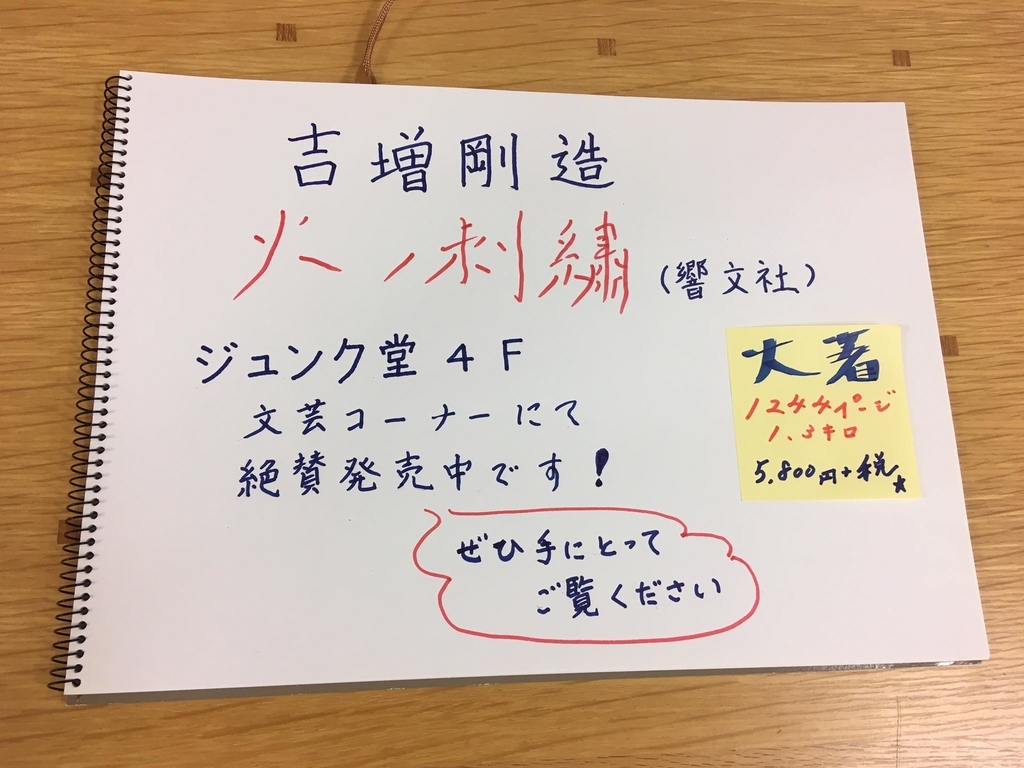 吉増剛造
火ノ刺繍 (響文社)
ジュンク堂 4F
文芸コーナーにて
絶賛発売中です!
ぜひ手にとって
ご覧ください
大著
1244ページ
1.3キロ
5,800円+税★